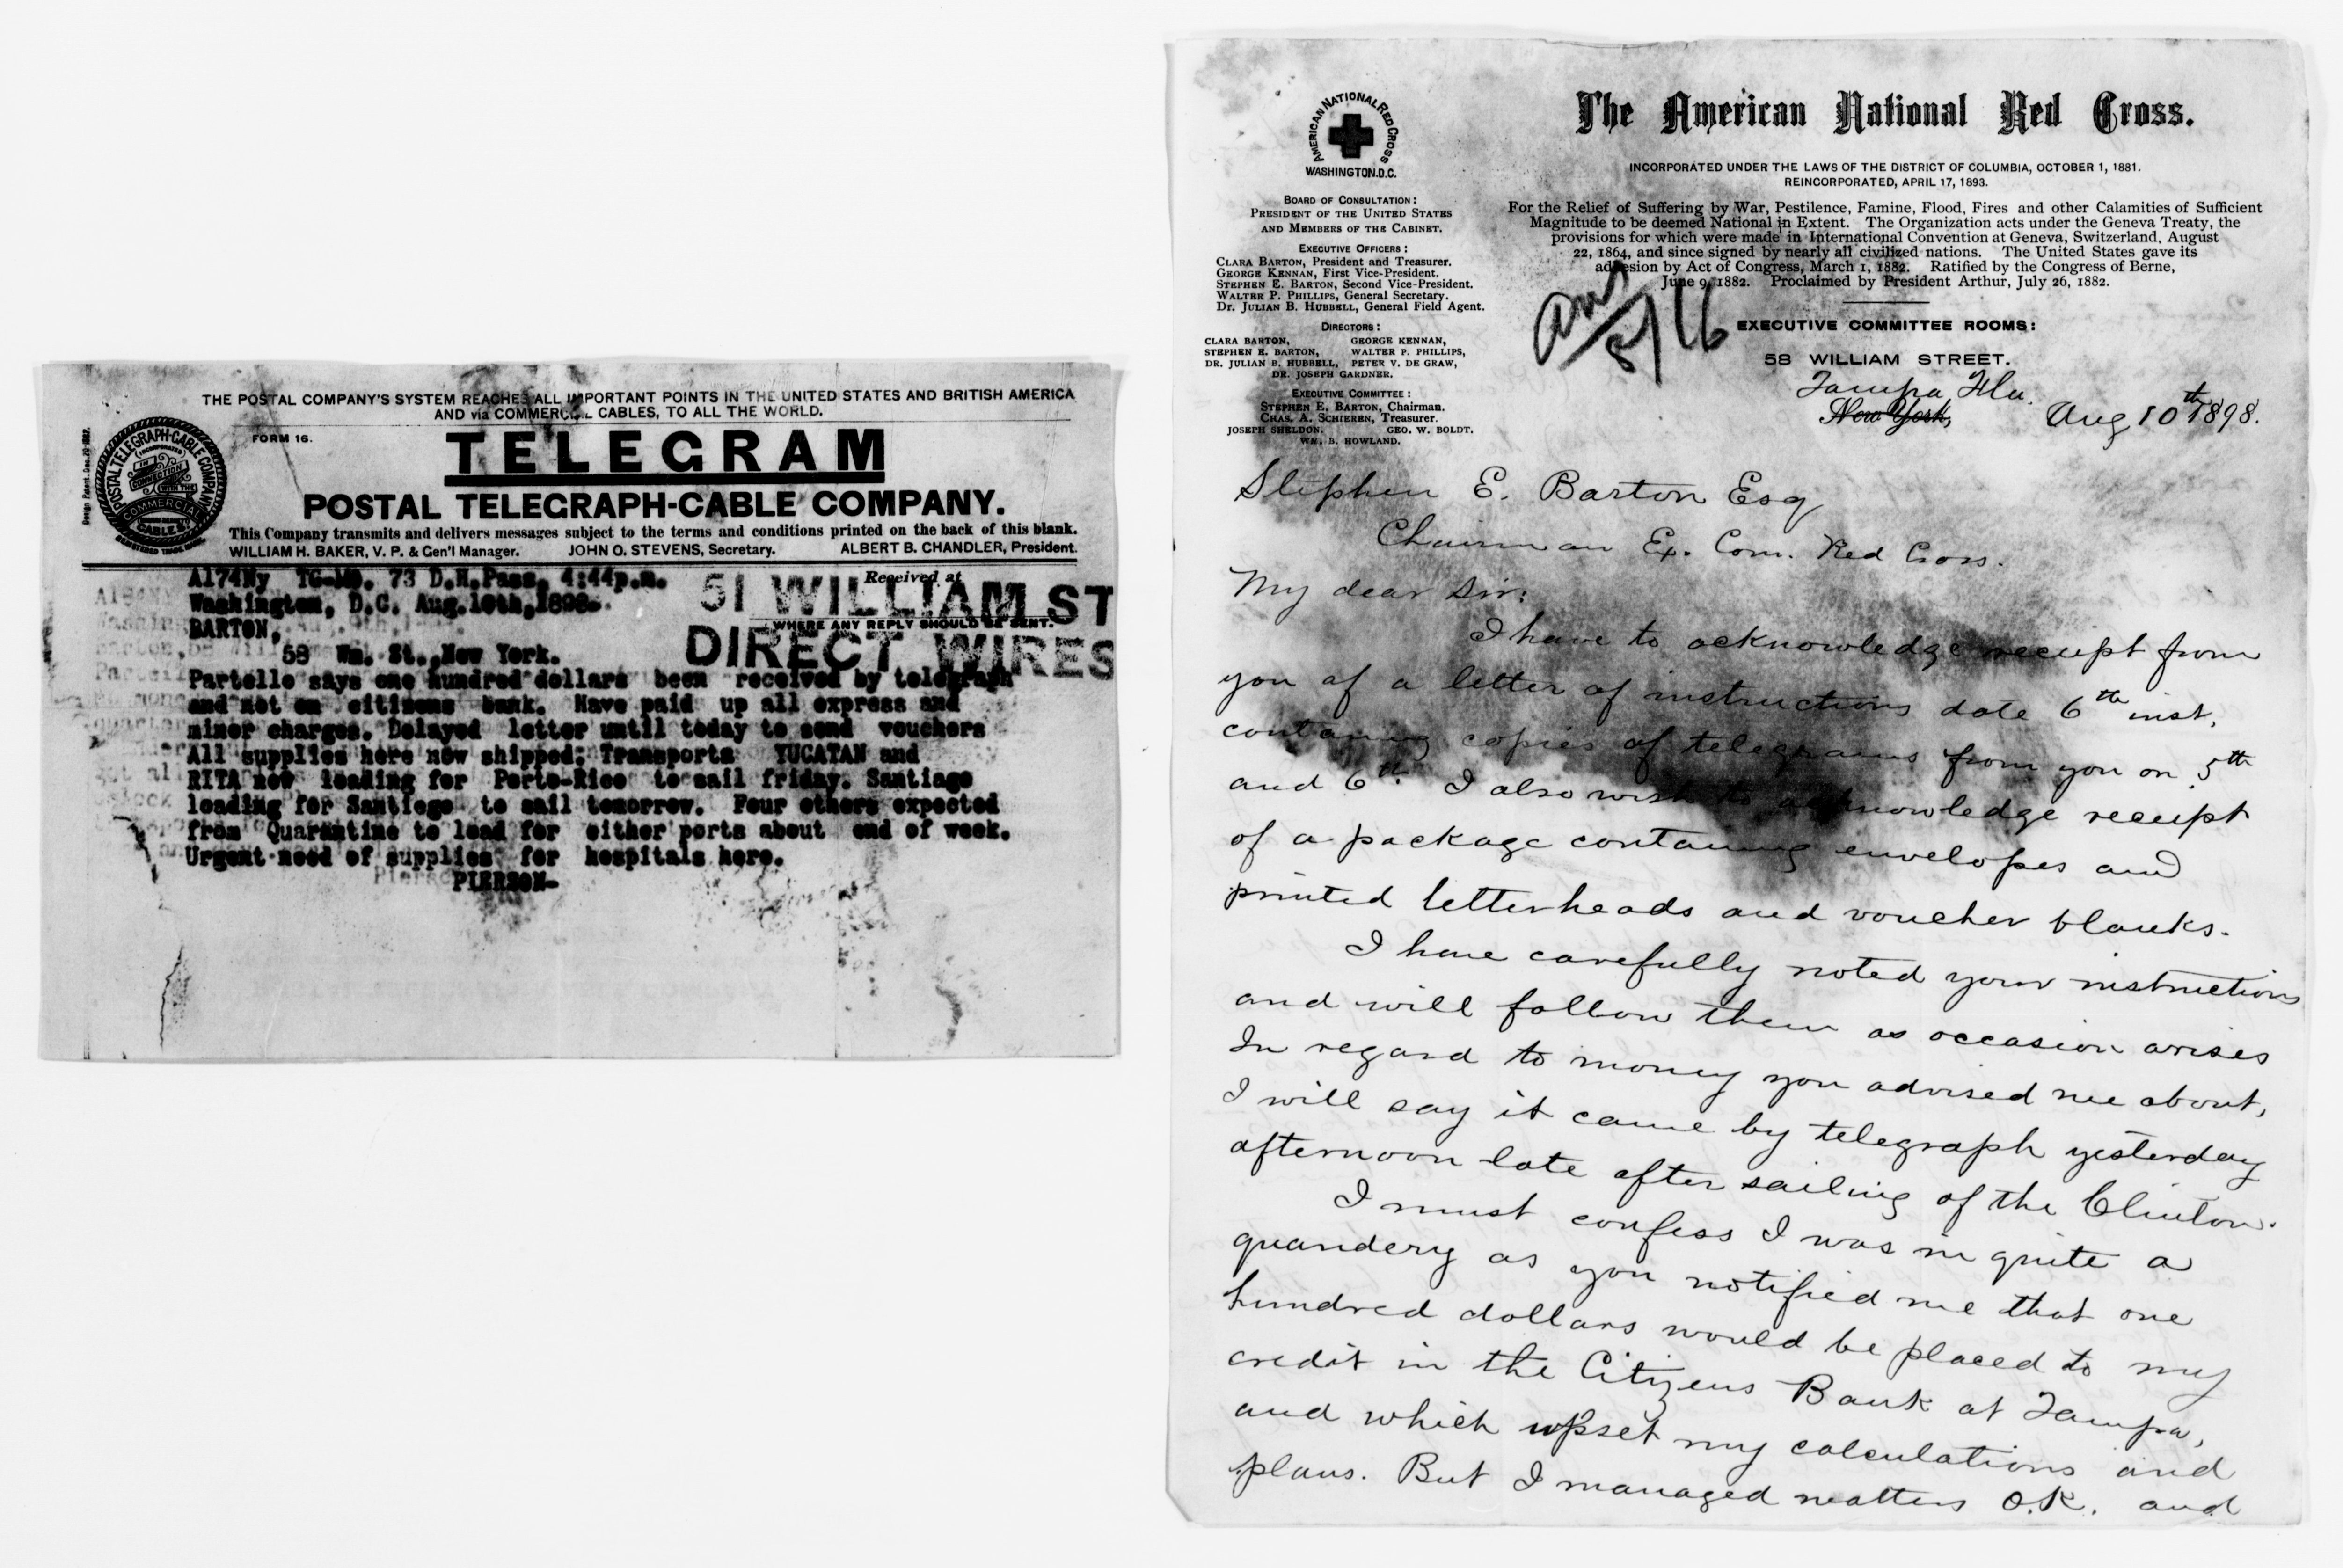 THE POSTAL COMPANY'S SYSTEM REACHES ALL IMPORTANT POINTS IN THE UNITED STATES AND BRITISH AMERICA
AND via COMMERCIAL CABLES, TO ALL THE WORLD.
FORM 16.
TELEGRAM
POSTAL TELEGRAPH-CABLE COMPANY.
This Company transmits and delivers messages subject to the terms and conditions printed on the back of this blank.
WILLIAM H. BAKER, V. P. & Gen'l Manager. JOHN O. STEVENS, Secretary. ALBERT B. CHANDLER, President.
POSTAL TELEGRAPH-CABLE COMPANY
COMMERCIAL
CABLES
REGISTERED TRADE MARK
Received at
51 WILLIAM ST
WHERE ANY REPLY SHOULD BE SENT.
DIRECT WIRES
A174Ny 73 D.H.Pass, 4:44p.m.
Washington, D.C. Aug.10th,1898.
BARTON,
58 Wm. St., New York.
Partelle says one hundred dollars been received by telegraph
and not on citizens bank. Have paid up all express and
minor charges. Delayed letter until today to send vouchers
All supplies here now shipped: Transports YUCATAN and
RITA now loading for Porto-Rico to sail friday. Santiago
loading for Santiago to sail tomorrow. Four others expected
from Quarantine to load for either ports about end of week.
Urgent need of supplies for hospitals here.
PIERSON-
AMERICAN NATIONAL RED CROSS
WASHINGTON.D.C.
The American National Red Cross.
INCORPORATED UNDER THE LAWS OF THE DISTRICT OF COLUMBIA, OCTOBER 1, 1881.
REINCORPORATED, APRIL 17, 1893.
For the Relief of Suffering by War, Pestilence, Famine, Flood, Fires and other Calamities of Sufficient
Magnitude to be deemed National in Extent. The Organization acts under the Geneva Treaty, the
provisions for which were made in International Convention at Geneva, Switzerland, August
22, 1864, and since signed by nearly all civilized nations. The United States gave its
adhesion by Act of Congress, March 1, 1882. Ratified by the Congress of Berne,
June 9, 1882. Proclaimed by President Arthur, July 26, 1882.
BOARD OF CONSULTATION:
PRESIDENT OF THE UNITED STATES
AND MEMBERS OF THE CABINET.
EXECUTIVE OFFICERS:
CLARA BARTON, President and Treasurer.
GEORGE KENNAN, First Vice-President.
STEPHEN E. BARTON, Second Vice-President.
WALTER P. PHILLIPS, General Secretary.
Dr. JULIAN B. HUBBELL, General Field Agent.
DIRECTORS:
CLARA BARTON, GEORGE KENNAN,
STEPHEN E. BARTON, WALTER P. PHILLIPS,
DR. JULIAN B. HUBBELL, PETER V. DE GRAW,
DR. JOSEPH GARDNER.
EXECUTIVE COMMITTEE:
STEPHEN E. BARTON, Chairman.
CHAS. A. SCHIEREN, Treasurer.
JOSEPH SHELDON. GEO. W. BOLDT.
WM. B. HOWLAND.
ans
8/16
EXECUTIVE COMMITTEE ROOMS:
58 WILLIAM STREET.
Tampa Fla.
New York, Aug 10th 1898.
Stephen E. Barton Esq
Chairman Ex. Com. Red Cross.
My dear Sir:
I have to acknowledge receipt from
you of a letter of instructions date 6th inst,
containg copies of telegrams from you on 5th
and 6th. I also wish to acknowledge receipt
of a package containing envelopes and
printed letterheads and voucher blanks.
I have carefully noted your instructions
and will follow them as occasion arises
In regard to money you advised me about,
I will say it came by telegraph yesterday
afternoon late after sailing of the Clinton.
I must confess I was in quite a
quandery as you notified me that one
hundred dollars would be placed to my
credit in the Citizens Bank at Tampa,
and which upset my calculations and
plans. But I managed matters O.K. and